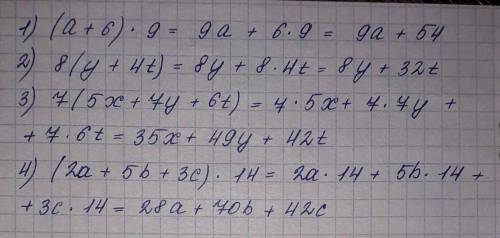 1) (a+6)·9 = 9a + 6·9 = 9a + 54
2) 8(y + 4t) = 8y + 8·4t = 8y + 32t
3) 7(5x + 7y + 6t) = 7·5x + 7·7y +
+ 7·6t = 35x + 49y + 42t
4) (2a + 5b + 3c)·14 = 2a·14 + 5b·14 +
+ 3c·14 = 28a + 70b + 42c